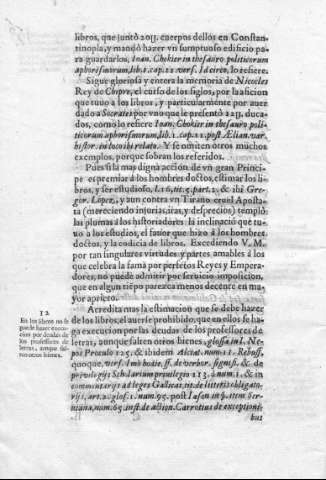 libros, que juntò 20ij. cuerpos dellos en Constan-
tinopla, y mandò hazer vn sumptuoso edificio pa-
ra guardarlos, Ioan. Chokier in thesauro politicorum
aphorismorum, lib. 1. cap. 11. vers. Id circo, lo refiere.
Sigue gloriosa y entera la memoria de Nicocles
Rey de Chipre, el curso de los siglos, por la aficion
que tuuo à los libros, y particularmente por auer
dado a Socrates por vno que le presentò 12ij. duca-
dos, como lo refiere Ioan. Chokier in thesauro poli-
ticorum aphorismorum, lib. 1. cap. 11. post Ælian. var.
histor. in loco ibi relato. Y se omiten otros muchos
exemplos, porque sobran los referidos.
Pues si la mas digna acción de vn gran Princi-
pe es premiar à los hombres doctos, estimar los li-
bros, y ser estudioso, l. 16. tit. 5. part. 2. & ibi Gre-
gor. Lopez, y aun contra vn Tirano cruel Aposta-
ta (mereciendo injurias, iras, y desprecios) templò
las plumas à los historiadores la inclinació que tu-
uo à los estudios, el fauor que hizo à los hombres
doctos, y la codicia de libros. Excediendo V. M.
por tan singulares virtudes y partes amables à los
que celebra la fama por perfetos Reyes y Empera-
dores, no puede admitir por seruicio imposicion,
que en algun tiẽpo parezca menos decente en ma-
yor aprieto.
12
En los libros no se
puede hazer execu-
cion por deudas de
los professores de
letras, aunque fal-
ten otros bienes.
Acredita mas la estimacion que se debe hazer
de los libros, el auerse prohibido, que en ellos se ha-
ga execucion por las deudas de los professores de
letras, aunque falten otros bienes, glossa in l. Ne-
pos Proculo 125. & ibidem Alciat. num. 11. Rebuff.
quoque, vers. Imò hodie, ff. de verbor. signifi. & de
priuilegijs Scholarium priuilegio 113. à num. 1. & in
commentarijs ad leges Gallicas, tit. de litteris obligato-
rijs, art. 2. glos. 1. num. 95. post Iason in §. item Ser-
uiana, num. 65. inst. de action. Carrotius de exceptioni-
bus